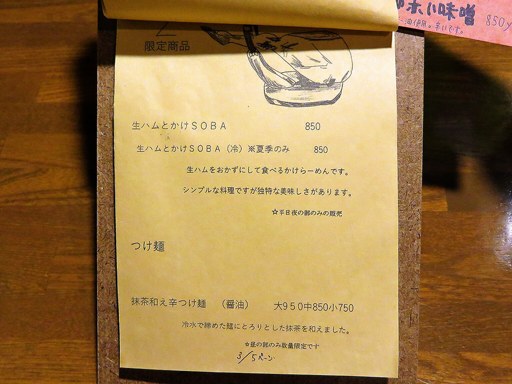 赤い味噌 850
限定商品
生ハムとかけSOBA 850
生ハムとかけSOBA(冷)※夏季のみ 850
生ハムをおかずにして食べるかけらーめんです。
シンプルな料理ですが独特な美味しさがあります。
☆平日夜の部のみの販売
つけ麺
抹茶和え辛つけ麺 (醤油) 大950中850小750
冷水で締めた麺にとろりとした抹茶を和えました。
☆昼の部のみ数量限定です